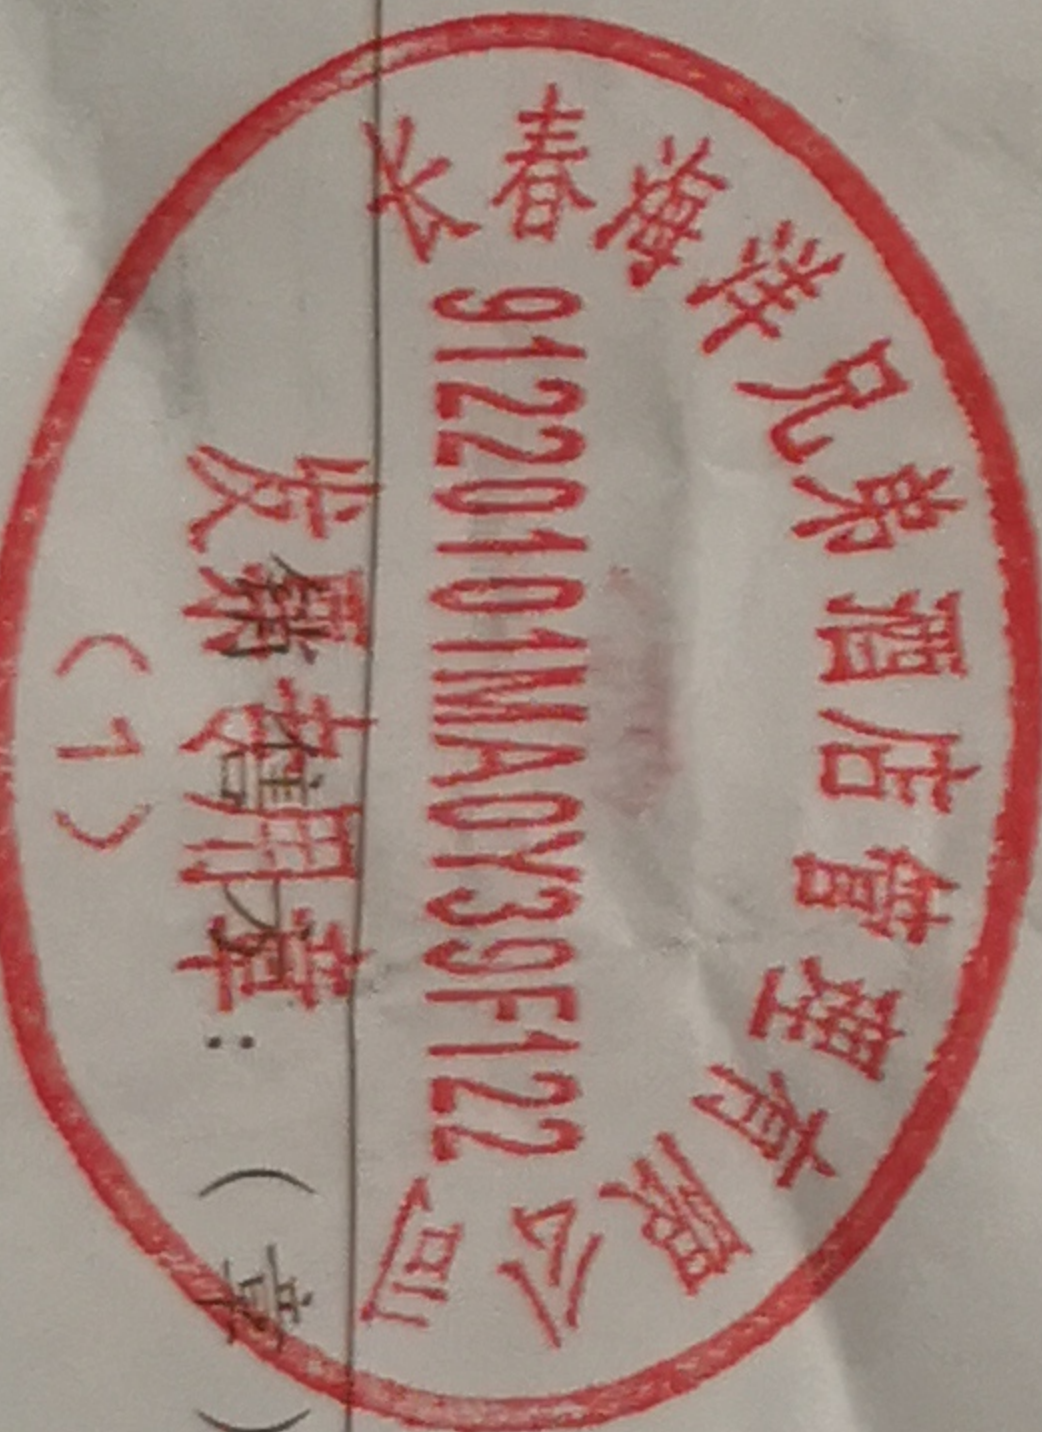 长春海洋兄弟酒店管理有限公司
91220101MA0Y39F122
发票专用章
(1)
销售方:(章)